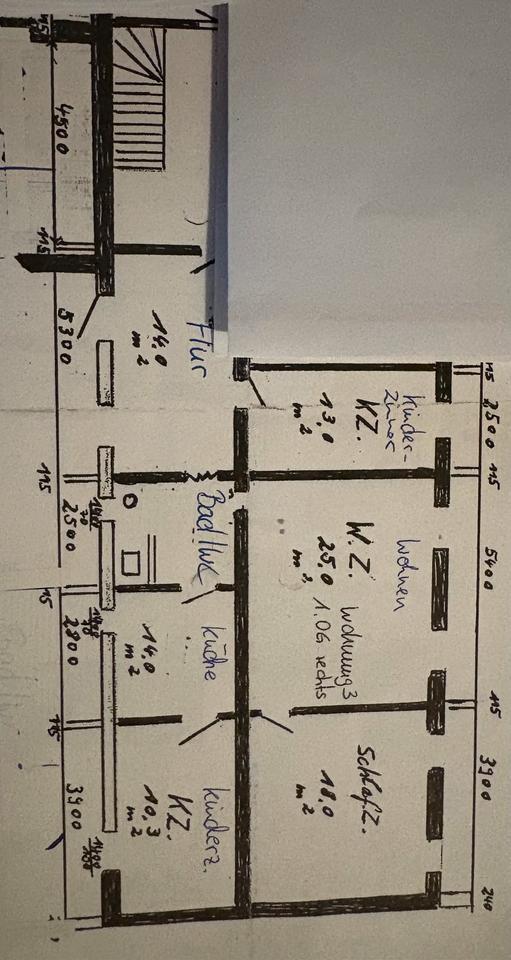 115
4500
115
5300
115
2500
115
2800
115
3900
Flur
14,0
m²
Kinder-
zimer
KZ.
13,0
m²
115
2500
115
5400
115
3900
240
Bad/WC
Wohnen
W.Z.
25,0
m²
Wohnung 3
1.OG rechts
Küche
14,0
m²
Schlaf.Z.
18,0
m²
Kinderz.
KZ.
10,3
m²